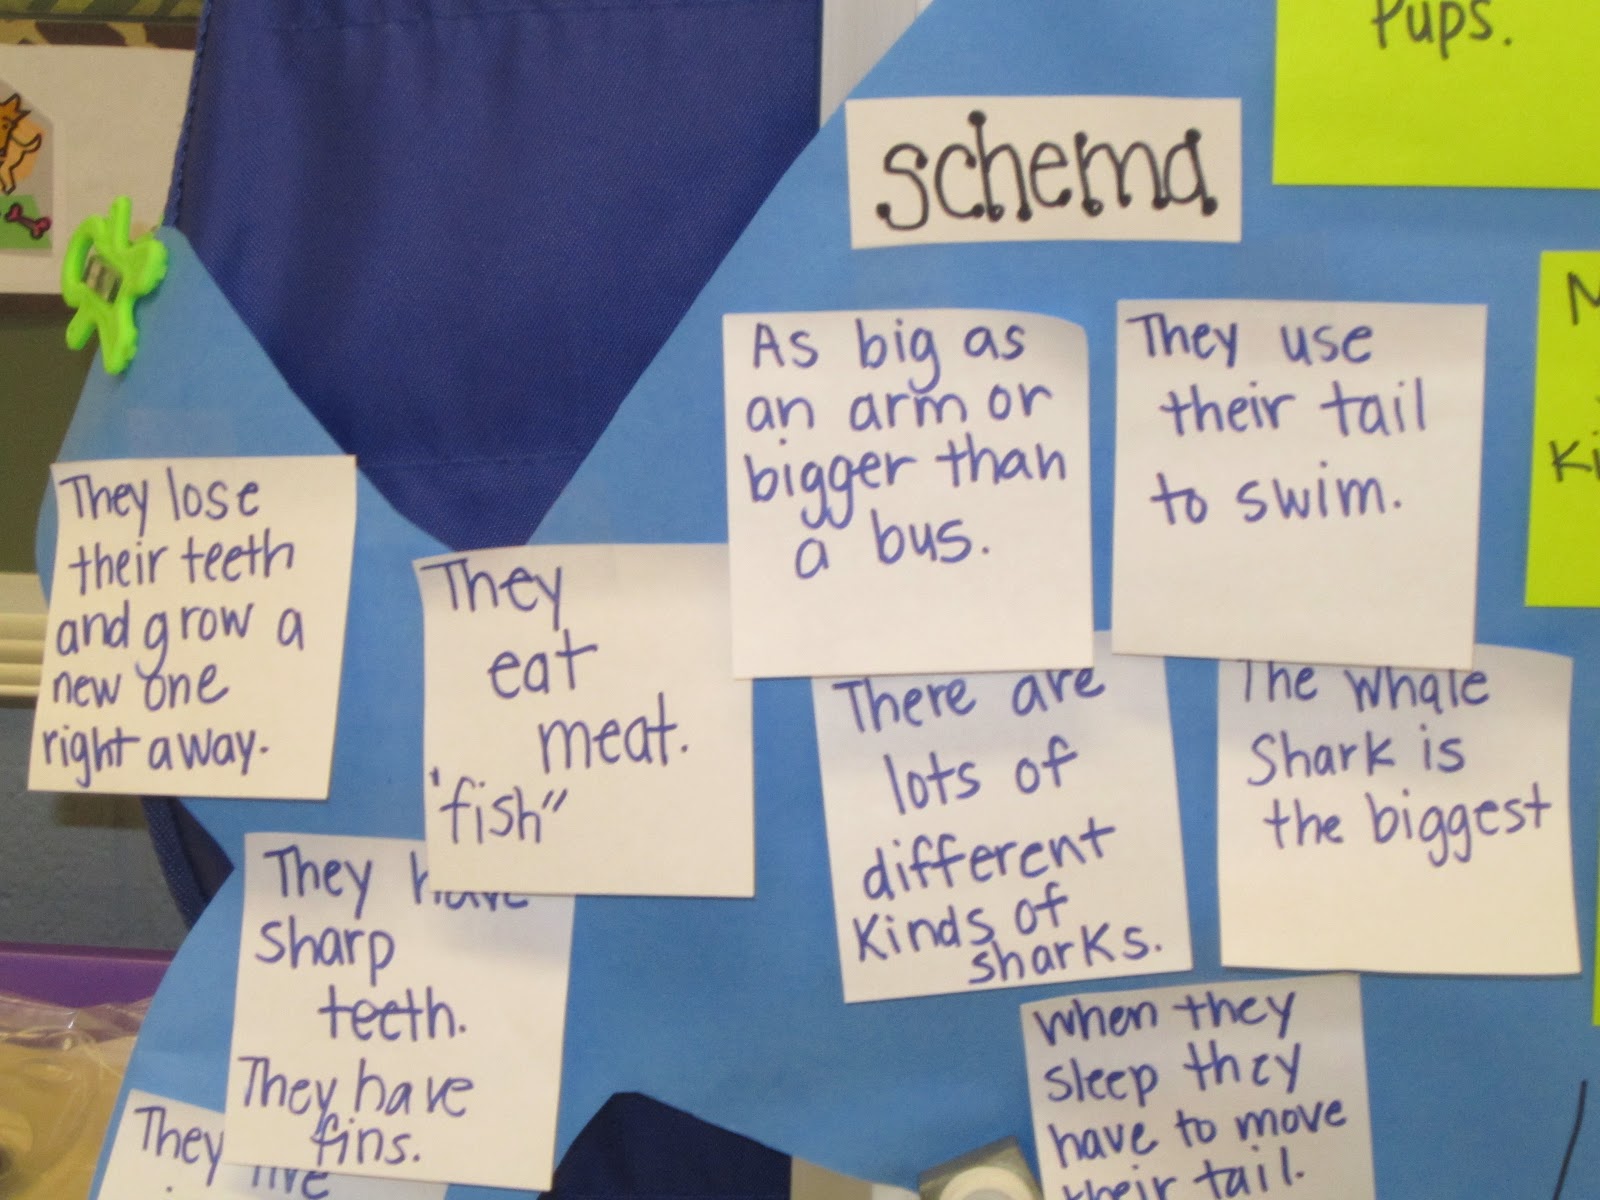 Pups.
schema
As big as
an arm or
bigger than
a bus.
They use
their tail
to swim.
They lose
their teeth
and grow a
new one
right away.
They
eat
meat.
'fish"
There are
lots of
different
Kinds of
sharks.
The whale
Shark is
the biggest
They have
sharp
teeth.
They have
fins.
When they
sleep they
have to move
their tail.
They live